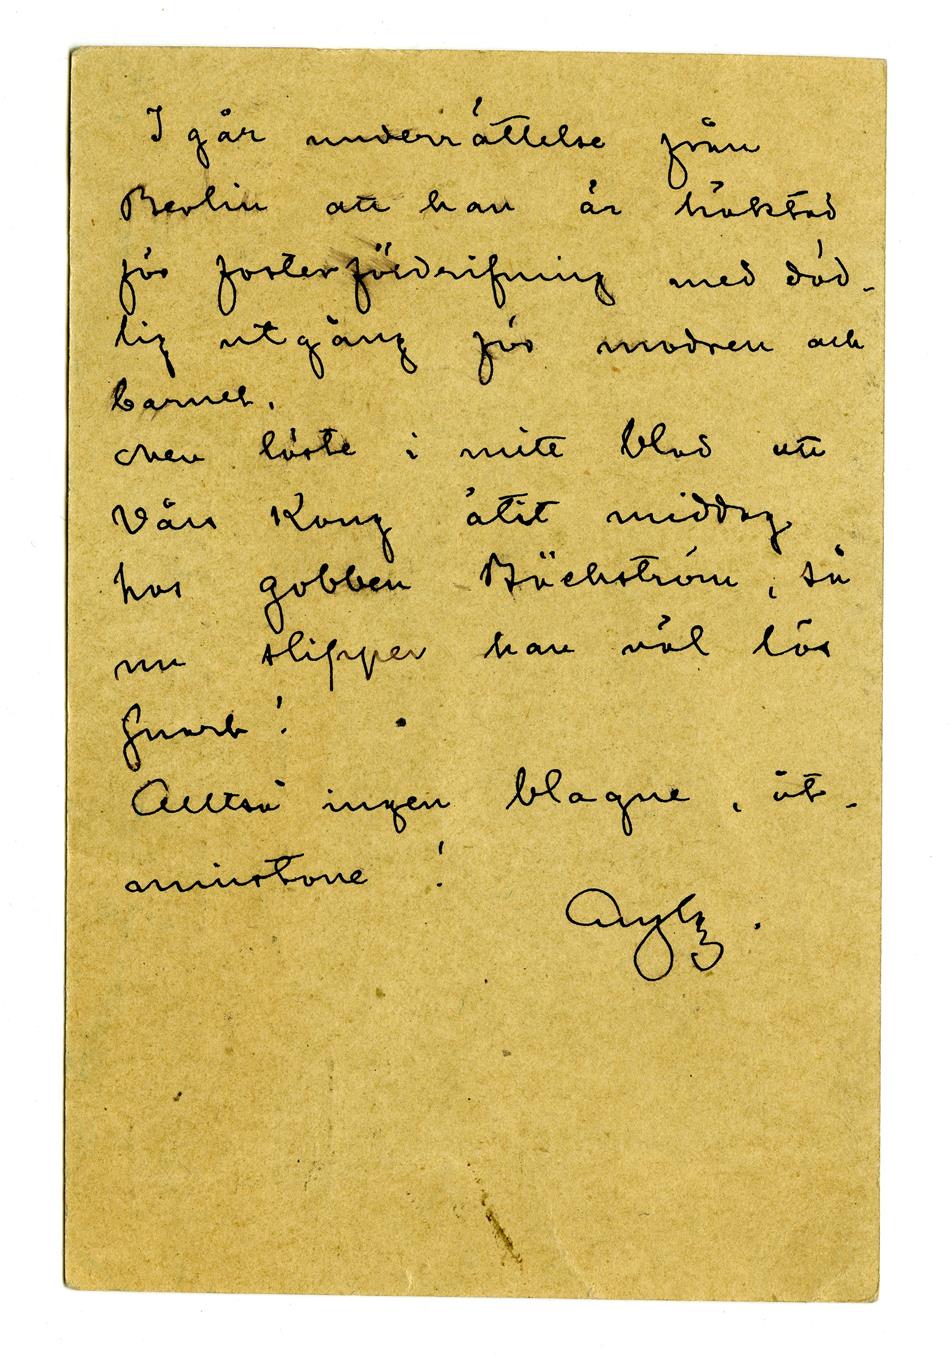 I går underrättelse från
Berlin att han är häktad
för fosterfördrifning med död-
lig utgång för modren och
barnet.
Men läste i mitt blad att
Vår Kung ätit middag
hos gubben Bäckström, så
nu slipper han väl lös
snart!
Alltså ingen blague, åt-
minstone!